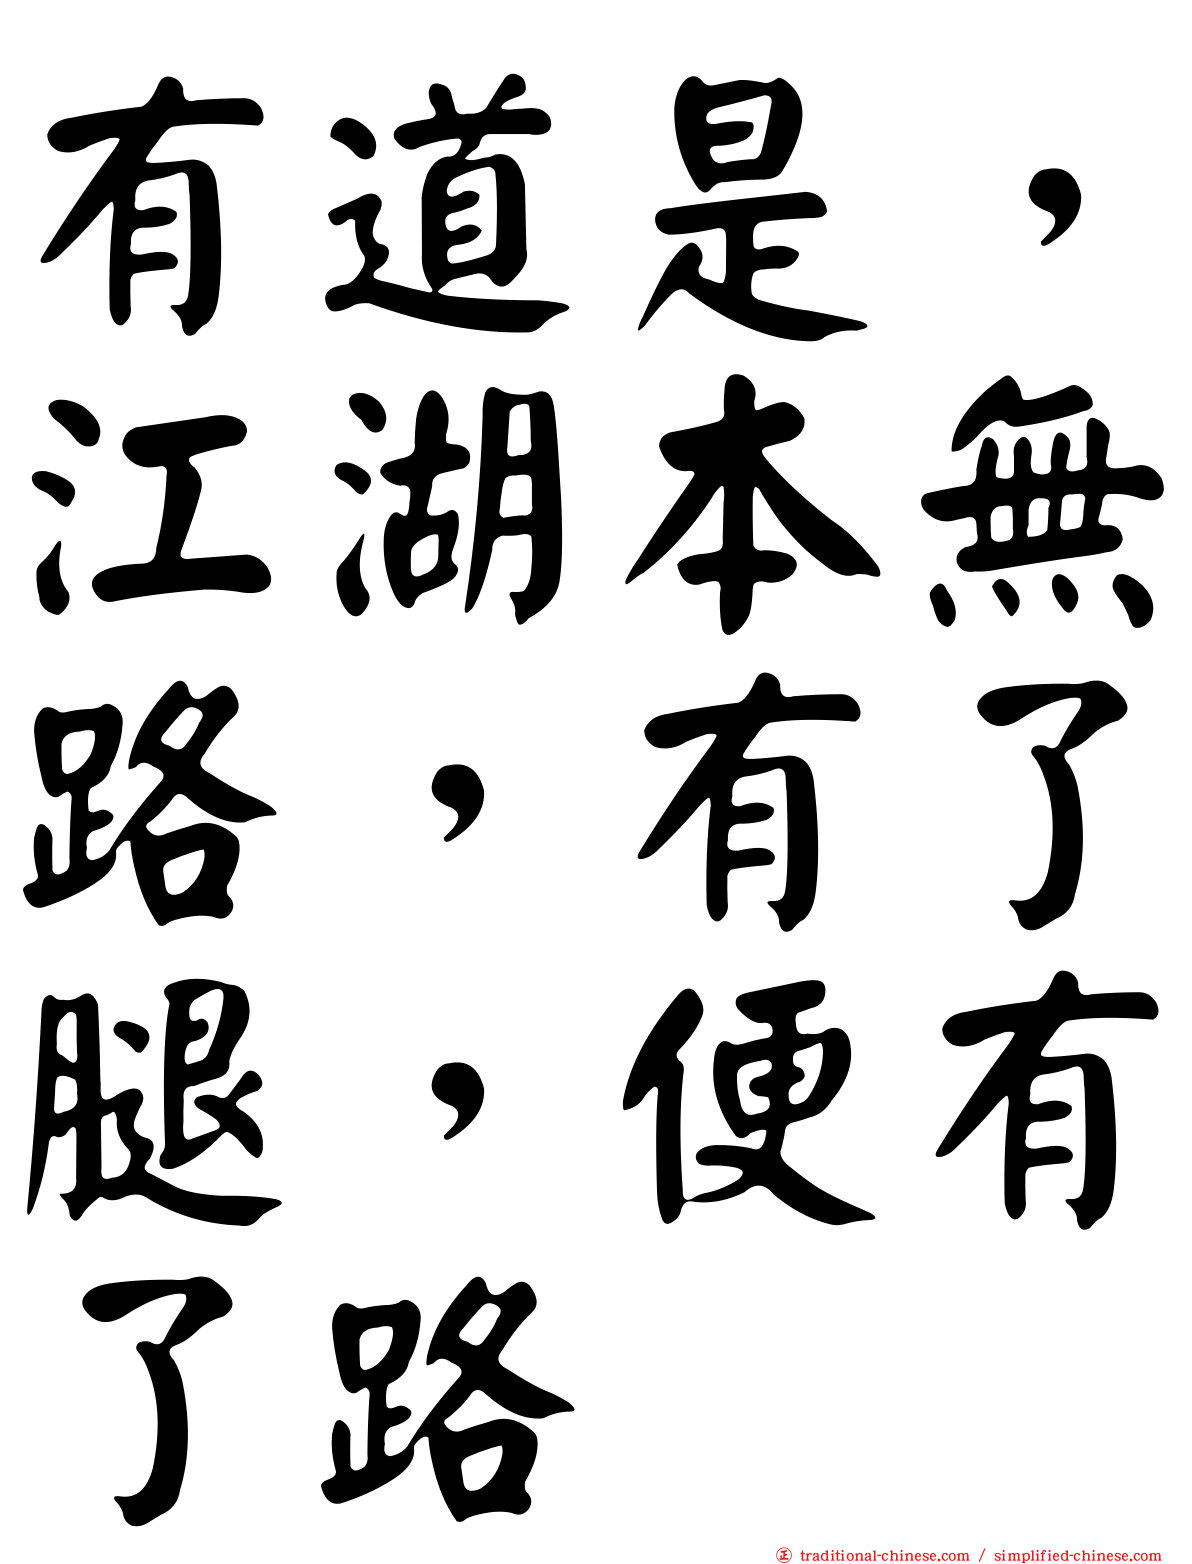 有道是，
江湖本無
路，有了
腿，便有
了路
㊣ traditional-chinese.com / simplified-chinese.com